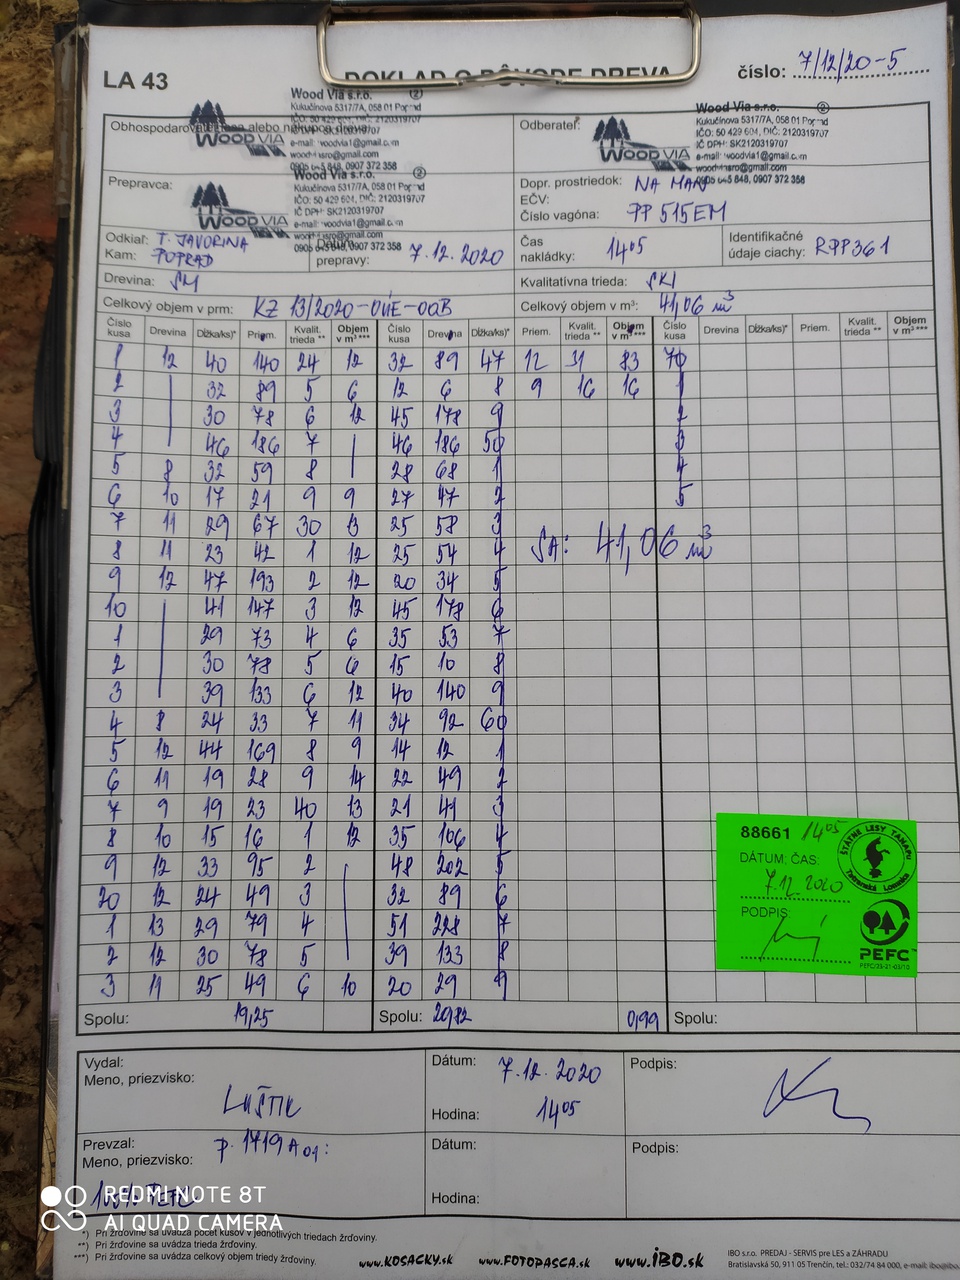 LA 43
DOKLAD O PÔVODE DREVA
číslo: 7/12/20-5
Wood Via s.r.o. (2)
Kukučínova 5317/7A, 058 01 Poprad
e-mail: woodvia1@gmail.com
woodviasro@gmail.com
0905 645 848, 0907 372 358
WOOD VIA
Odberateľ:
WOOD VIA
Wood Via s.r.o. (2)
Kukučínova 5317/7A, 058 01 Poprad
IČO: 50 429 604, DIČ: 2120319707
IČ DPH: SK2120319707
e-mail: woodvia1@gmail.com
woodviasro@gmail.com
0905 645 848, 0907 372 358
Prepravca:
WOOD VIA
Wood Via s.r.o. (2)
Kukučínova 5317/7A, 058 01 Poprad
IČO: 50 429 604, DIČ: 2120319707
IČ DPH: SK2120319707
e-mail: woodvia1@gmail.com
woodviasro@gmail.com
0905 645 848, 0907 372 358
Dopr. prostriedok: NA MAN
EČV:
Číslo vagóna: PP 515EM
Odkiaľ: T. JAVORINA
Kam: POPRAD
Dátum prepravy: 7.12.2020
Čas nakládky: 14 05
Identifikačné údaje ciachy: RPP361
Drevina: SM
Kvalitatívna trieda: SKI
Celkový objem v prm: KZ 13/2020-OÚE-OOB
Celkový objem v m³: 41,06 m³
Číslo kusa Drevina Dĺžka/ks)* Priem. Kvalit. trieda ** Objem v m³ *** Číslo kusa Drevina Dĺžka/ks)* Priem. Kvalit. trieda ** Objem v m³ *** Číslo kusa Drevina Dĺžka/ks)* Priem. Kvalit. trieda ** Objem v m³ ***
1 12 40 140 24 12 32 89 47 12 31 83 70
2 32 89 5 6 12 6 8 9 16 16 1
3 30 78 6 12 45 178 9 2
4 46 186 7 46 186 50 3
5 8 32 59 8 28 68 1 4
6 10 17 21 9 9 27 47 2 5
7 11 29 67 30 13 25 58 3
8 11 23 42 1 12 25 54 4
SA: 41,06 m³
9 12 47 193 2 12 20 34 5
10 41 147 3 12 45 178 6
1 29 73 4 6 35 53 7
2 30 78 5 6 15 10 8
3 39 133 6 12 40 140 9
4 8 24 33 7 11 34 92 60
5 12 44 169 8 9 14 12 1
6 11 19 28 9 14 22 49 2
7 9 19 23 40 13 21 41 3
8 10 15 16 1 12 35 106 4
9 12 33 95 2 48 202 5
20 12 24 49 3 32 89 6
1 13 29 79 4 51 228 7
2 12 30 78 5 39 133 8
3 11 25 49 6 10 20 29 9
Spolu: 19,25 Spolu: 20,82 0,99 Spolu:
88661 14 05
ŠTÁTNE LESY TANAPU
Tatranská Lomnica
DÁTUM: ČAS:
7.12.2020
PODPIS:
PEFC™
PEFC/25-21-03/10
Vydal:
Meno, priezvisko:
LUŠTIK
Dátum: 7.12.2020
Hodina: 14 05
Podpis:
Prevzal: P. 1719 A 01:
Meno, priezvisko:
Dátum:
Hodina:
Podpis:
REDMI NOTE 8T
AI QUAD CAMERA
*) Pri žrďovine sa uvádza počet kusov v jednotlivých triedach žrďoviny.
**) Pri žrďovine sa uvádza trieda žrďoviny.
***) Pri žrďovine sa uvádza celkový objem triedy žrďoviny.
www.KOSACKY.sk www.FOTOPASCA.sk www.iBO.sk
IBO s.r.o. PREDAJ - SERVIS pre LES a ZÁHRADU
Bratislavská 50, 911 05 Trenčín, tel.: 032/74 84 000,